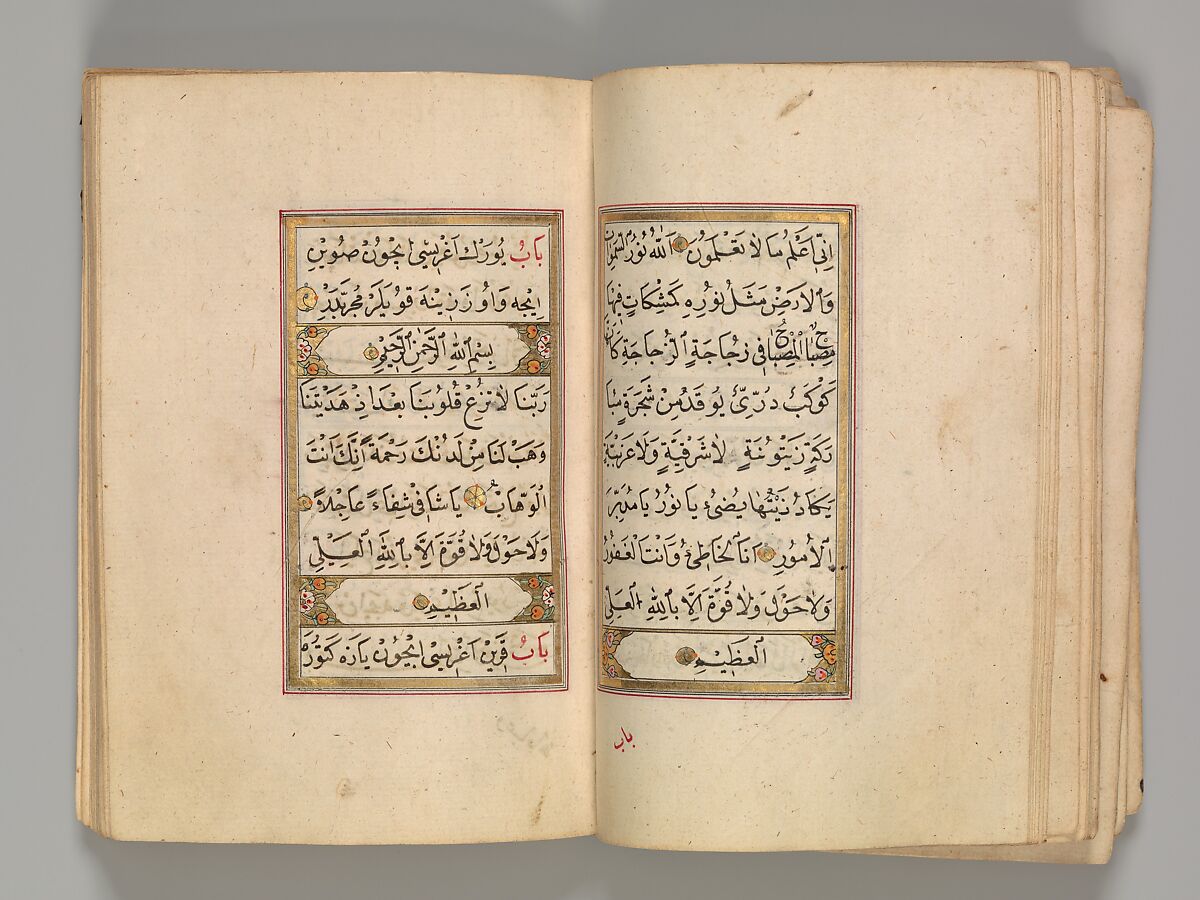 اِنّٖى اَعْلَمُ مَا لَا تَعْلَمُونَ اَللّٰهُ نُورُ السَّمٰوَاتِ
وَالْاَرْضِ مَثَلُ نُورِهِ كَمِشْكَاتٍ فِيهَا
مِصْبَاحٌ الْمِصْبَاحُ فِى زُجَاجَةٍ اَلزُّجَاجَةُ كَاَنَّ
كَوْكَبٌ دُرِّىٌّ يُوقَدُ مِنْ شَجَرَةٍ مُبَا
رَكَةٍ زَيْتُونَةٍ لَا شَرْقِيَّةٍ وَلَا غَرْبِيَّةٍ
يَكَادُ زَيْتُهَا يُضِىءُ يَا نُورُ يَا مُدَبِّرَ
الْاُمُورِ اَنَا الْخَاطِئُ وَاَنْتَ الْغَفُورُ
وَلَا حَوْلَ وَلَا قُوَّةَ اِلَّا بِاللّٰهِ الْعَلِىِّ
الْعَظِيمِ
باب
بَابُ يُورَكْ اَغْرِيسِى اِيچُونْ صُويِنِ
اِيچه وَاُوزَرِينَه قُويَلَرْ مُجَرَّبْدِرْ
بِسْمِ اللّٰهِ الرَّحْمٰنِ الرَّحِيمِ
رَبَّنَا لَا تُزِغْ قُلُوبَنَا بَعْدَ اِذْ هَدَيْتَنَا
وَهَبْ لَنَا مِنْ لَدُنْكَ رَحْمَةً اِنَّكَ اَنْتَ
الْوَهَّابُ يَا شَافِى شِفَاءً عَاجِلًا
وَلَا حَوْلَ وَلَا قُوَّةَ اِلَّا بِاللّٰهِ الْعَلِىِّ
الْعَظِيمِ
بَابُ قَرِينْ اَغْرِيسِى اِيچُونْ يَازَه كَتُورَه